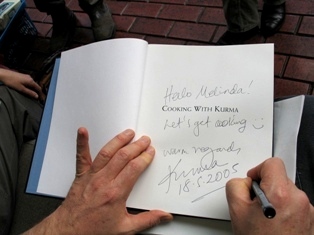 Hello Melinda!
COOKING WITH KURMA
Let's get cooking :)
warm regards
Kurma
18.5.2005